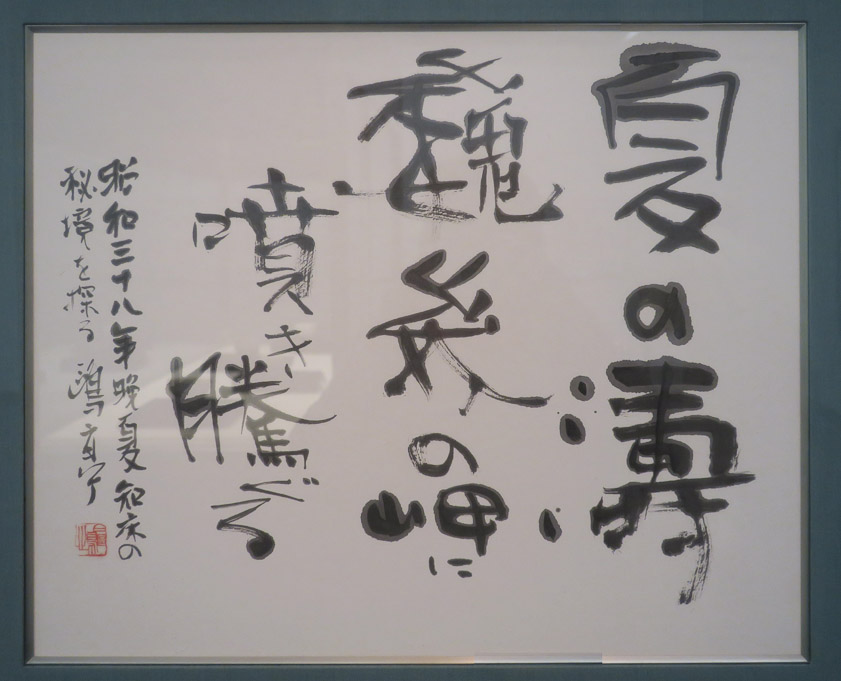 夏の濤
の岬に
噴き騰ぐる
昭和三十八年晩夏知床の
秘境を探る